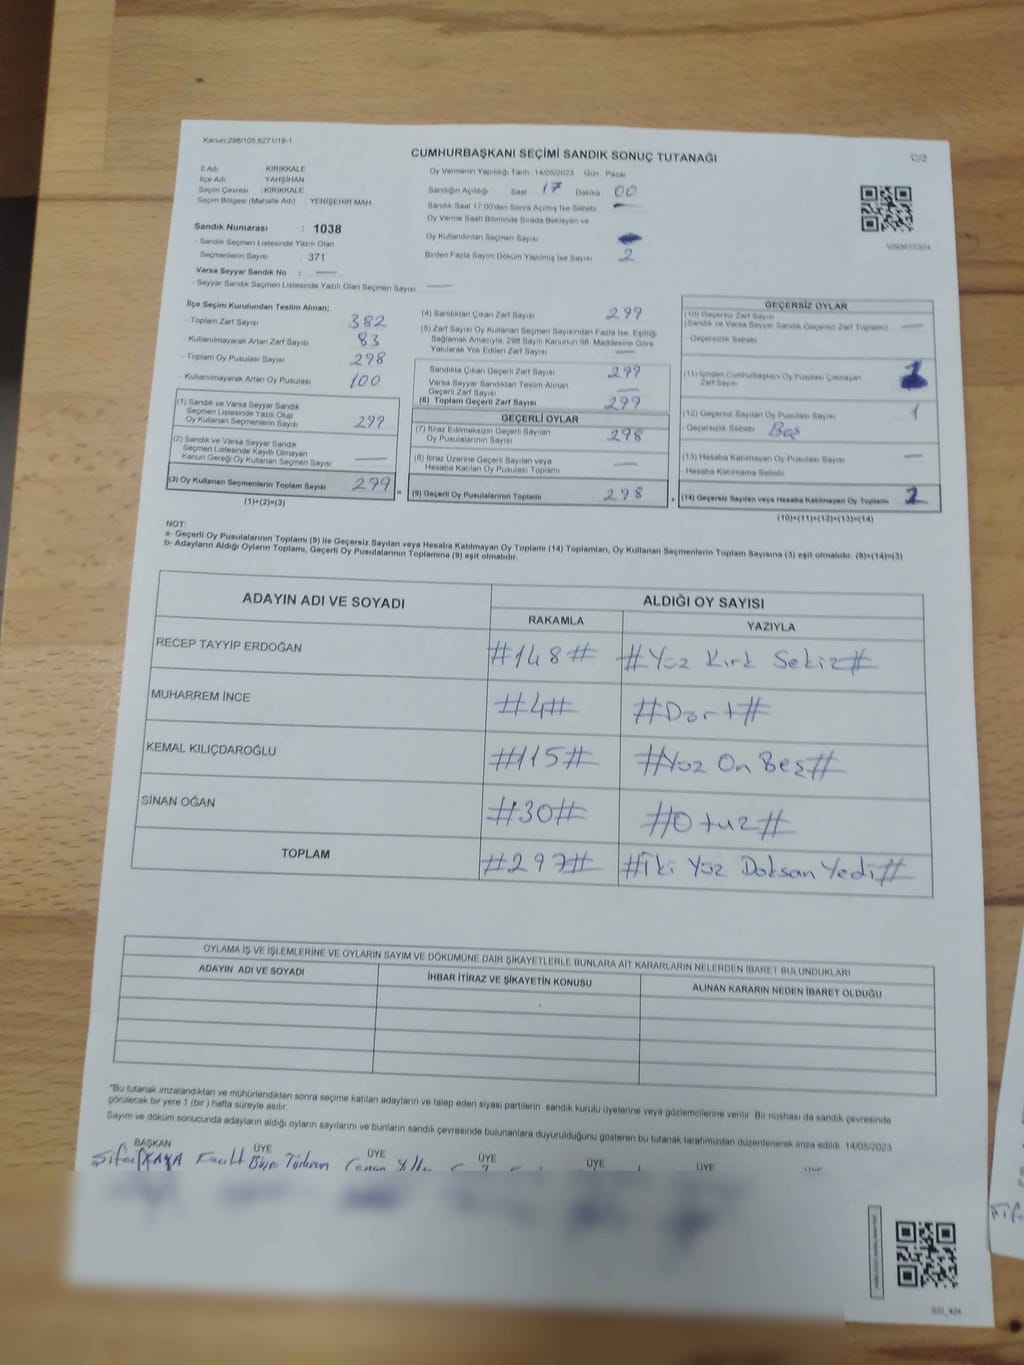 Kanun:298/105;6271/18-1
CUMHURBAŞKANI SEÇİMİ SANDIK SONUÇ TUTANAĞI
C/2
İl Adı KIRIKKALE
İlçe Adı YAHŞİHAN
Seçim Çevresi : KIRIKKALE
Seçim Bölgesi (Mahalle Adı) : YENİŞEHİR MAH.
Oy Vermenin Yapıldığı Tarih 14/05/2023 Gün Pazar
Sandığın Açıldığı Saat 17 Dakika 00
Sandık Saat 17:00'den Sonra Açılmış İse Sebebi
Oy Verme Saati Bitiminde Sırada Bekleyen ve
Oy Kullandırılan Seçmen Sayısı
Birden Fazla Sayım Döküm Yapılmış İse Sayısı 2
Sandık Numarası : 1038
- Sandık Seçmen Listesinde Yazılı Olan
Seçmenlerin Sayısı : 371
Varsa Seyyar Sandık No : —
- Seyyar Sandık Seçmen Listesinde Yazılı Olan Seçmen Sayısı : —
İlçe Seçim Kurulundan Teslim Alınan;
- Toplam Zarf Sayısı 382
- Kullanılmayarak Artan Zarf Sayısı 83
- Toplam Oy Pusulası Sayısı 298
- Kullanılmayarak Artan Oy Pusulası 100
(1) Sandık ve Varsa Seyyar Sandık
Seçmen Listesinde Yazılı Olup
Oy Kullanan Seçmenlerin Sayısı 299
(2) Sandık ve Varsa Seyyar Sandık
Seçmen Listesinde Kayıtlı Olmayan
Kanun Gereği Oy Kullanan Seçmen Sayısı —
(3) Oy Kullanan Seçmenlerin Toplam Sayısı 299
(1)+(2)=(3)
(4) Sandıktan Çıkan Zarf Sayısı 299
(5) Zarf Sayısı Oy Kullanan Seçmen Sayısından Fazla İse, Eşitliği
Sağlamak Amacıyla, 298 Sayılı Kanunun 98. Maddesine Göre
Yakılarak Yok Edilen Zarf Sayısı —
Sandıkta Çıkan Geçerli Zarf Sayısı 299
Varsa Seyyar Sandıktan Teslim Alınan
Geçerli Zarf Sayısı —
(6) Toplam Geçerli Zarf Sayısı 299
GEÇERLİ OYLAR
(7) İtiraz Edilmeksizin Geçerli Sayılan
Oy Pusulalarının Sayısı 298
(8) İtiraz Üzerine Geçerli Sayılan veya
Hesaba Katılan Oy Pusulası Toplamı —
(9) Geçerli Oy Pusulalarının Toplamı 298
GEÇERSİZ OYLAR
(10) Geçersiz Zarf Sayısı
(Sandık ve Varsa Seyyar Sandık Geçersiz Zarf Toplamı) —
- Geçersizlik Sebebi
(11) İçinden Cumhurbaşkanı Oy Pusulası Çıkmayan
Zarf Sayısı
(12) Geçersiz Sayılan Oy Pusulası Sayısı 1
- Geçersizlik Sebebi Boş
(13) Hesaba Katılmayan Oy Pusulası Sayısı —
- Hesaba Katılmama Sebebi
(14) Geçersiz Sayılan veya Hesaba Katılmayan Oy Toplamı 2
(10)+(11)+(12)+(13)=(14)
NOT:
a- Geçerli Oy Pusulalarının Toplamı (9) ile Geçersiz Sayılan veya Hesaba Katılmayan Oy Toplamı (14) Toplamları, Oy Kullanan Seçmenlerin Toplam Sayısına (3) eşit olmalıdır. (9)+(14)=(3)
b- Adayların Aldığı Oyların Toplamı, Geçerli Oy Pusulalarının Toplamına (9) eşit olmalıdır.
ADAYIN ADI VE SOYADI
ALDIĞI OY SAYISI
RAKAMLA YAZIYLA
RECEP TAYYİP ERDOĞAN #148# #Yüz Kırk Sekiz#
MUHARREM İNCE #4# #Dört#
KEMAL KILIÇDAROĞLU #115# #Yüz On Beş#
SİNAN OĞAN #30# #Otuz#
TOPLAM #297# #İki Yüz Doksan Yedi#
OYLAMA İŞ VE İŞLEMLERİNE VE OYLARIN SAYIM VE DÖKÜMÜNE DAİR ŞİKAYETLERLE BUNLARA AİT KARARLARIN NELERDEN İBARET BULUNDUKLARI
ADAYIN ADI VE SOYADI İHBAR İTİRAZ VE ŞİKAYETİN KONUSU ALINAN KARARIN NEDEN İBARET OLDUĞU
*Bu tutanak imzalandıktan ve mühürlendikten sonra seçime katılan adayların ve talep eden siyasi partilerin sandık kurulu üyelerine veya gözlemcilerine verilir. Bir nüshası da sandık çevresinde
görülecek bir yere 1 (bir ) hafta süreyle asılır.
Sayım ve döküm sonucunda adayların aldığı oyların sayılarını ve bunların sandık çevresinde bulunanlara duyurulduğunu gösteren bu tutanak tarafımızdan düzenlenerek imza edildi. 14/05/2023
BAŞKAN ÜYE ÜYE ÜYE ÜYE ÜYE ÜYE
KAYA